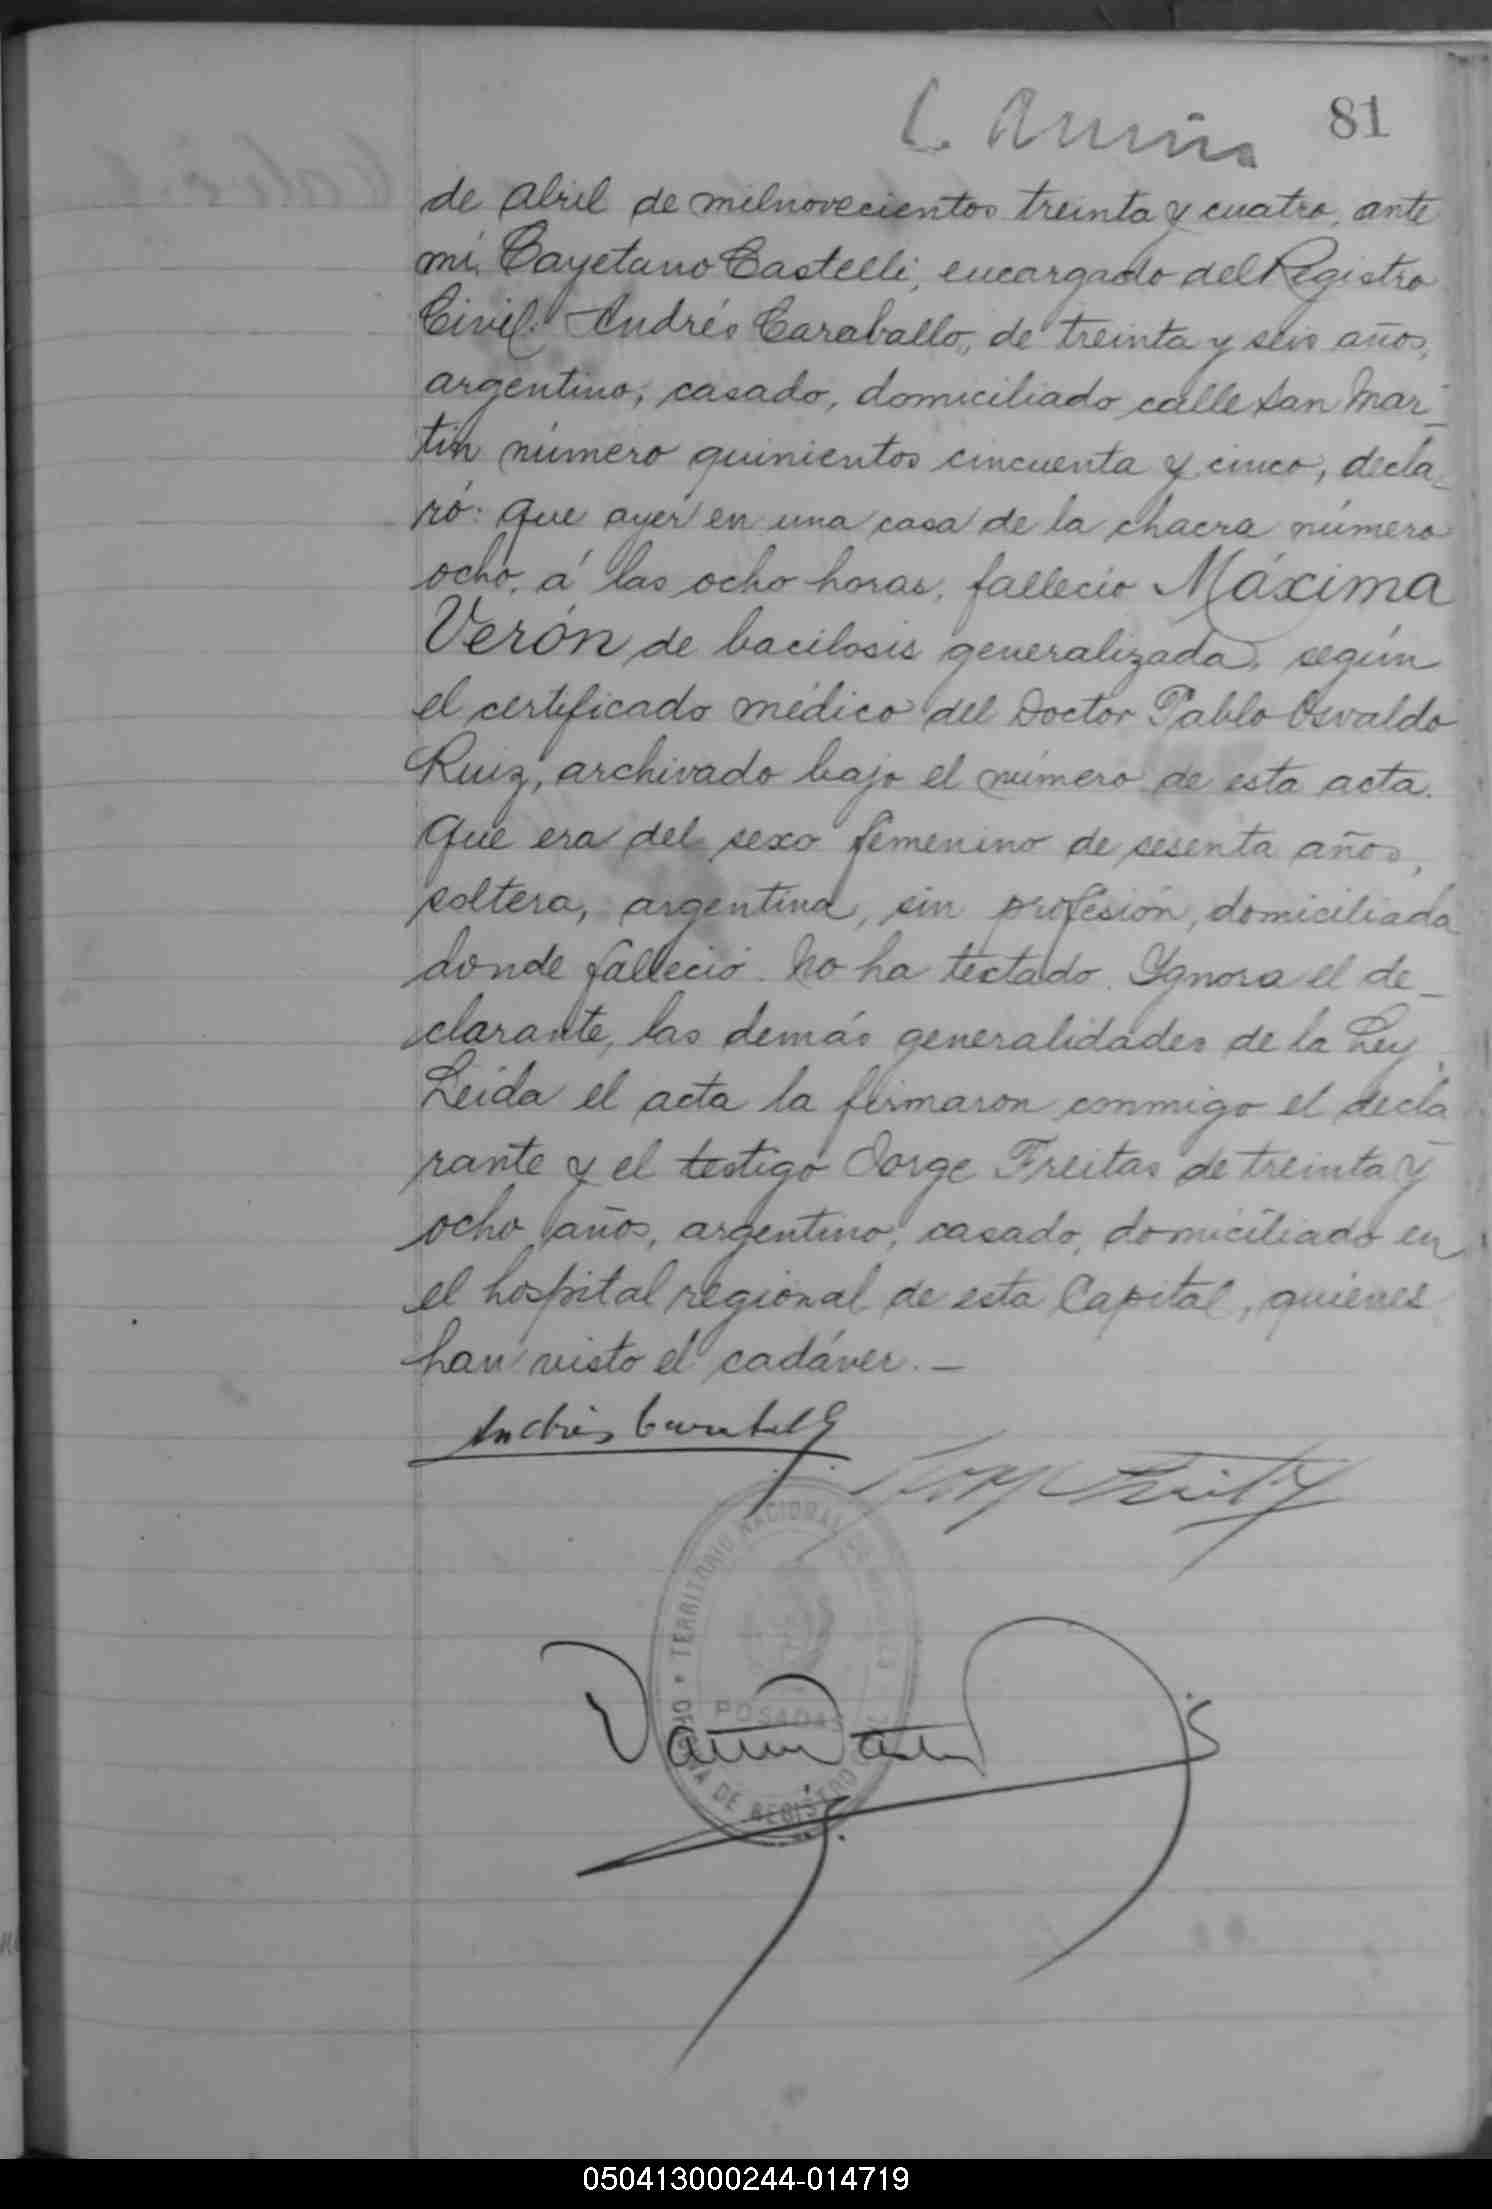 81
de Abril de milnovecientos treinta y cuatro, ante
mí, Cayetano Castelli, encargado del Registro
Civil: Andrés Caraballo, de treinta y seis años,
argentino, casado, domiciliado calle San Mar-
tin número quinientos cincuenta y cinco, decla-
ró: Que ayer en una casa de la chacra número
ocho, á las ocho horas, falleció Máxima
Verón de bacilosis generalizada, según
el certificado médico del Doctor Pablo Osvaldo
Ruiz, archivado bajo el número de esta acta.
Que era del sexo femenino de sesenta años,
soltera, argentina, sin profesión, domiciliada
donde falleció. No ha testado. Ygnora el de-
clarante, las demás generalidades de la Ley.
Leida el acta la firmaron conmigo el decla-
rante y el testigo Jorge Freitas de treinta y
ocho años, argentino, casado, domiciliado en
el hospital regional de esta Capital, quienes
han visto el cadáver. —
TERRITORIO NACIONAL DE MISIONES
POSADAS
DE REGISTRO
050413000244-014719